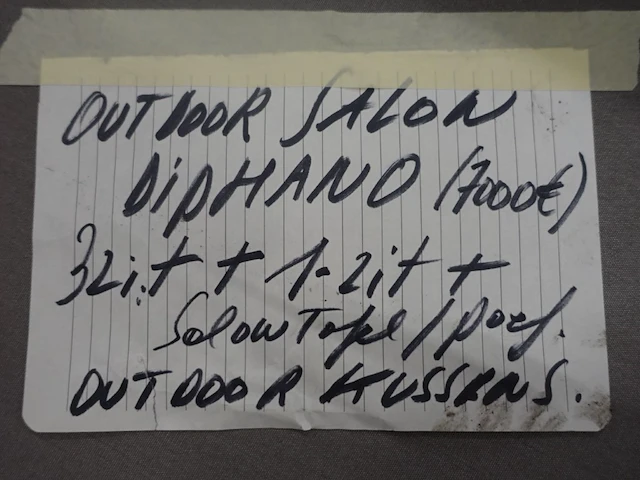 OUTDOOR SALON
DiPHANO (7000€)
3Zit + 1-Zit +
Salontafel / poef.
OUTDOOR KUSSENS.